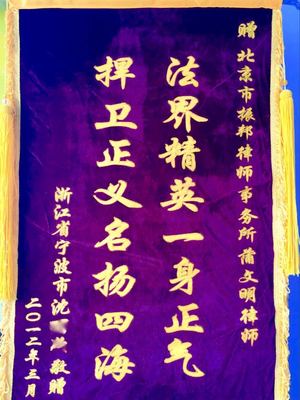 赠 北京市振邦律师事务所蒲文明律师
法界精英一身正气
捍卫正义名扬四海
浙江省宁波市沈 敬赠
二〇一二年三月